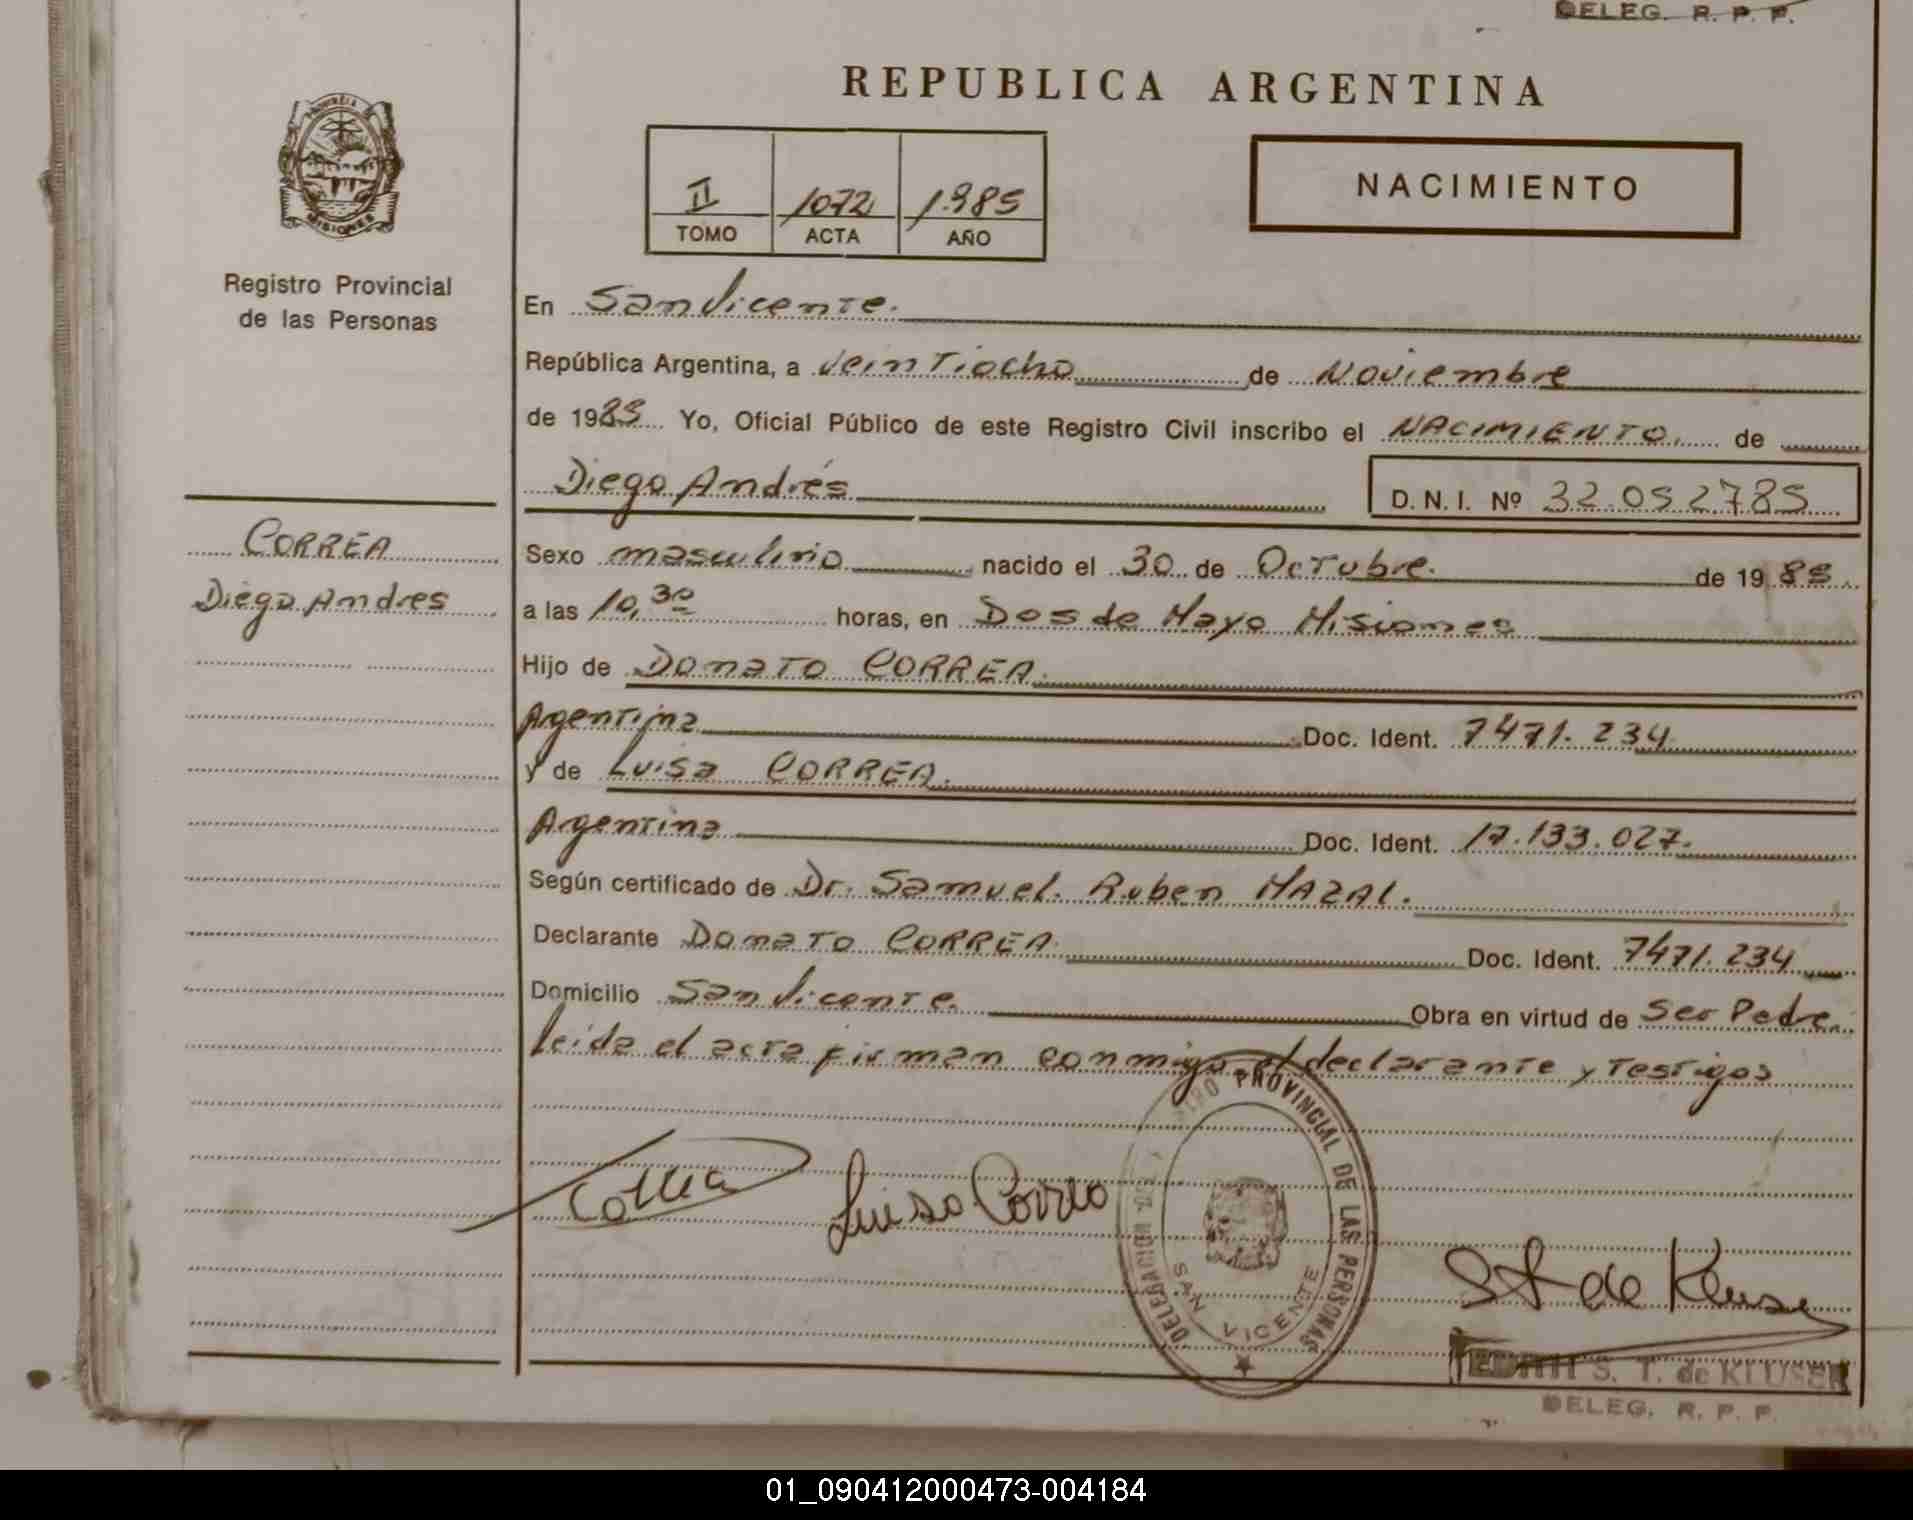 DELEG. R. P. P.
REPUBLICA ARGENTINA
PROVINCIA
MISIONES
II 1072 1.985
TOMO ACTA AÑO
NACIMIENTO
Registro Provincial
de las Personas
En San Vicente.
República Argentina, a VeinTiocho de Noviembre
de 1985 Yo, Oficial Público de este Registro Civil inscribo el NACIMIENTO. de
Diego Andrés
D. N. I. Nº 32.052785
CORREA
Diego Andres
Sexo masculino nacido el 30 de OcTubre. de 19 85
a las 10,30 horas, en Dos de Mayo Misiones
Hijo de DonaTO CORREA.
Argentina Doc. Ident. 7471.234
y de Luisa CORREA.
Argentina Doc. Ident. 17.133.027.
Según certificado de Dr. Samuel. Ruben MAZAL.
Declarante DonaTO CORREA. Doc. Ident. 7471.234
Domicilio San Vicente. Obra en virtud de Ser Padre.
leida el acta firman conmigo el declarante y Testigos
Correa Luisa Correa
DELEGACION PROVINCIAL DE LAS PERSONAS
SAN VICENTE
S T de Kluser
EDITH S. T. de KLUSER
DELEG. R. P. P.
01_090412000473-004184